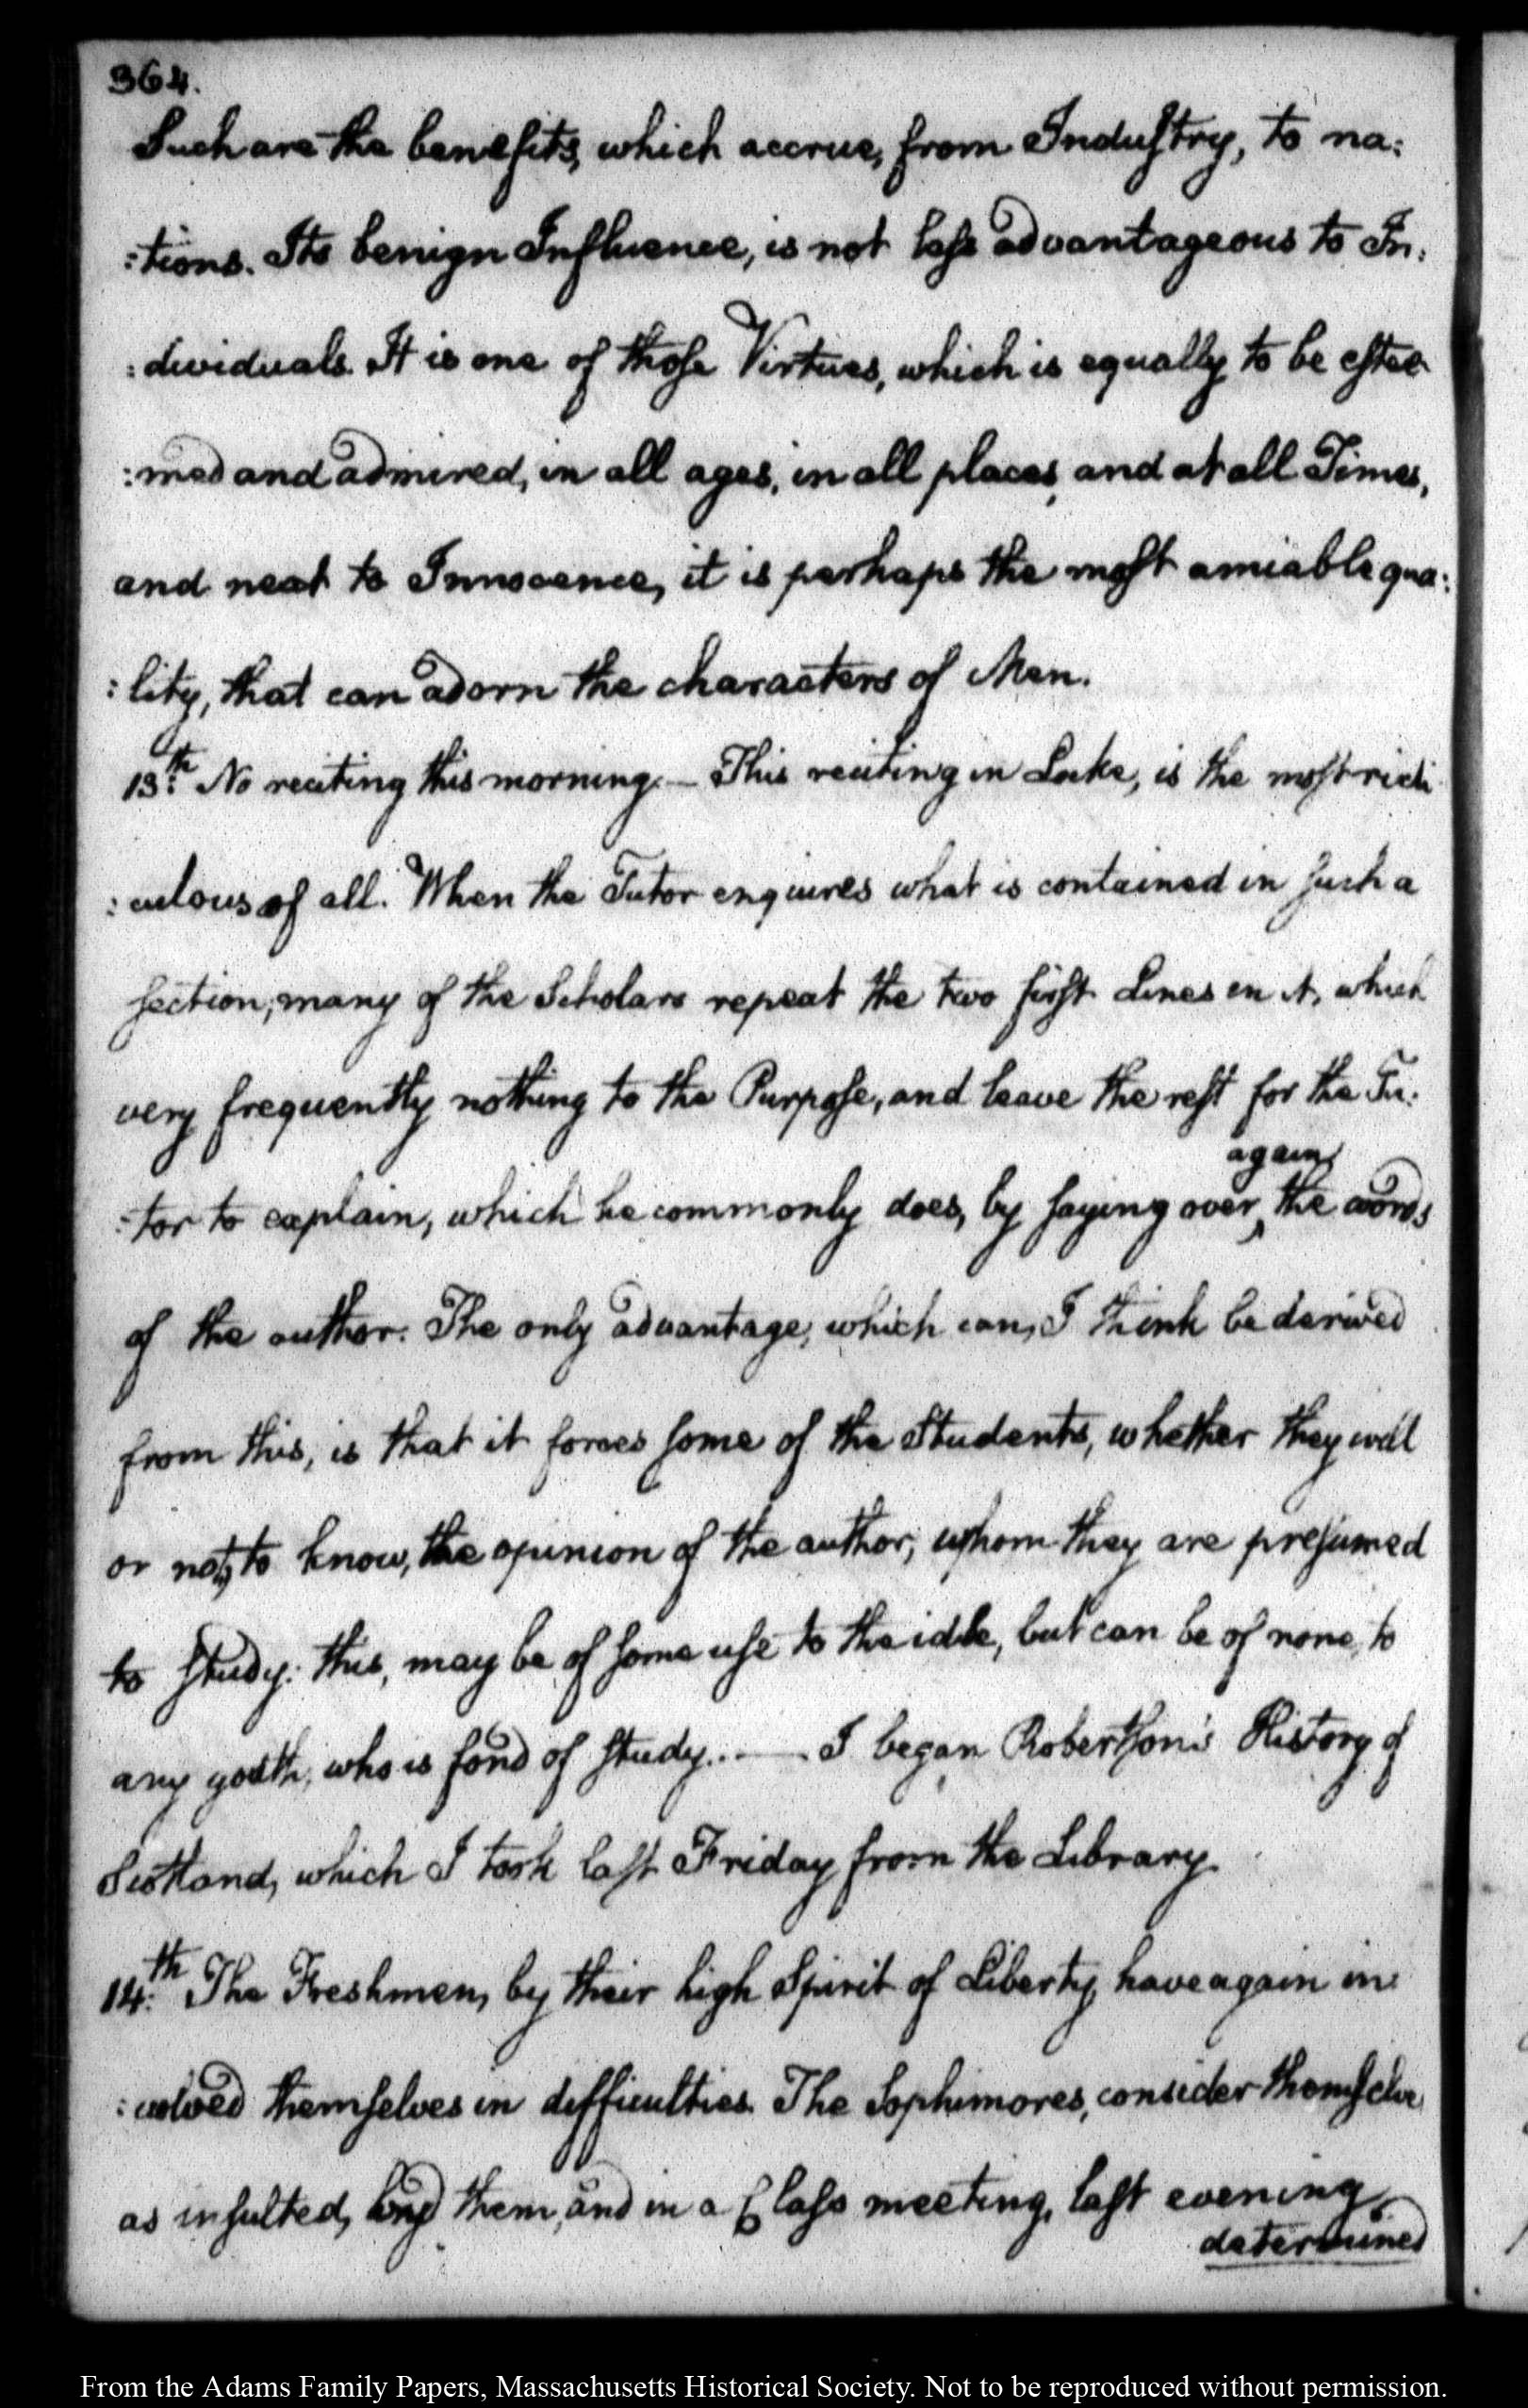 364.
Such are the benefits, which accrue, from Industry, to na:
:tions. Its benign Influence, is not less advantageous to In:
:dividuals. It is one of those Virtues, which is equally to be estee
:med and admired, in all ages, in all places, and at all Times,
and next to Innocence, it is perhaps the most amiable qua:
:lity, that can adorn the characters of Men.
13th. No reciting this morning.— This reciting in Locke, is the most ridi
:culous of all. When the Tutor enquires what is contained in such a
section, many of the Scholars repeat the two first Lines in it, which
very frequently nothing to the Purpose, and leave the rest for the Tu:
again
:tor to explain, which he commonly does, by saying over, the words
of the author. The only advantage, which can, I think be derived
from this, is that it forces some of the Students, whether they will
or not, to know, the opinion of the author, whom they are presumed
to study: this, may be of some use to the idle, but can be of none, to
any youth, who is fond of study.. —— . I began Robertson's History of
Scotland, which I took last Friday from the Library.
14th. The Freshmen, by their high Spirit of Liberty, have again in:
:volved themselves in difficulties. The Sophimores, consider themselve
as insulted, by them, and in a Class meeting, last evening
determined
From the Adams Family Papers, Massachusetts Historical Society. Not to be reproduced without permission.